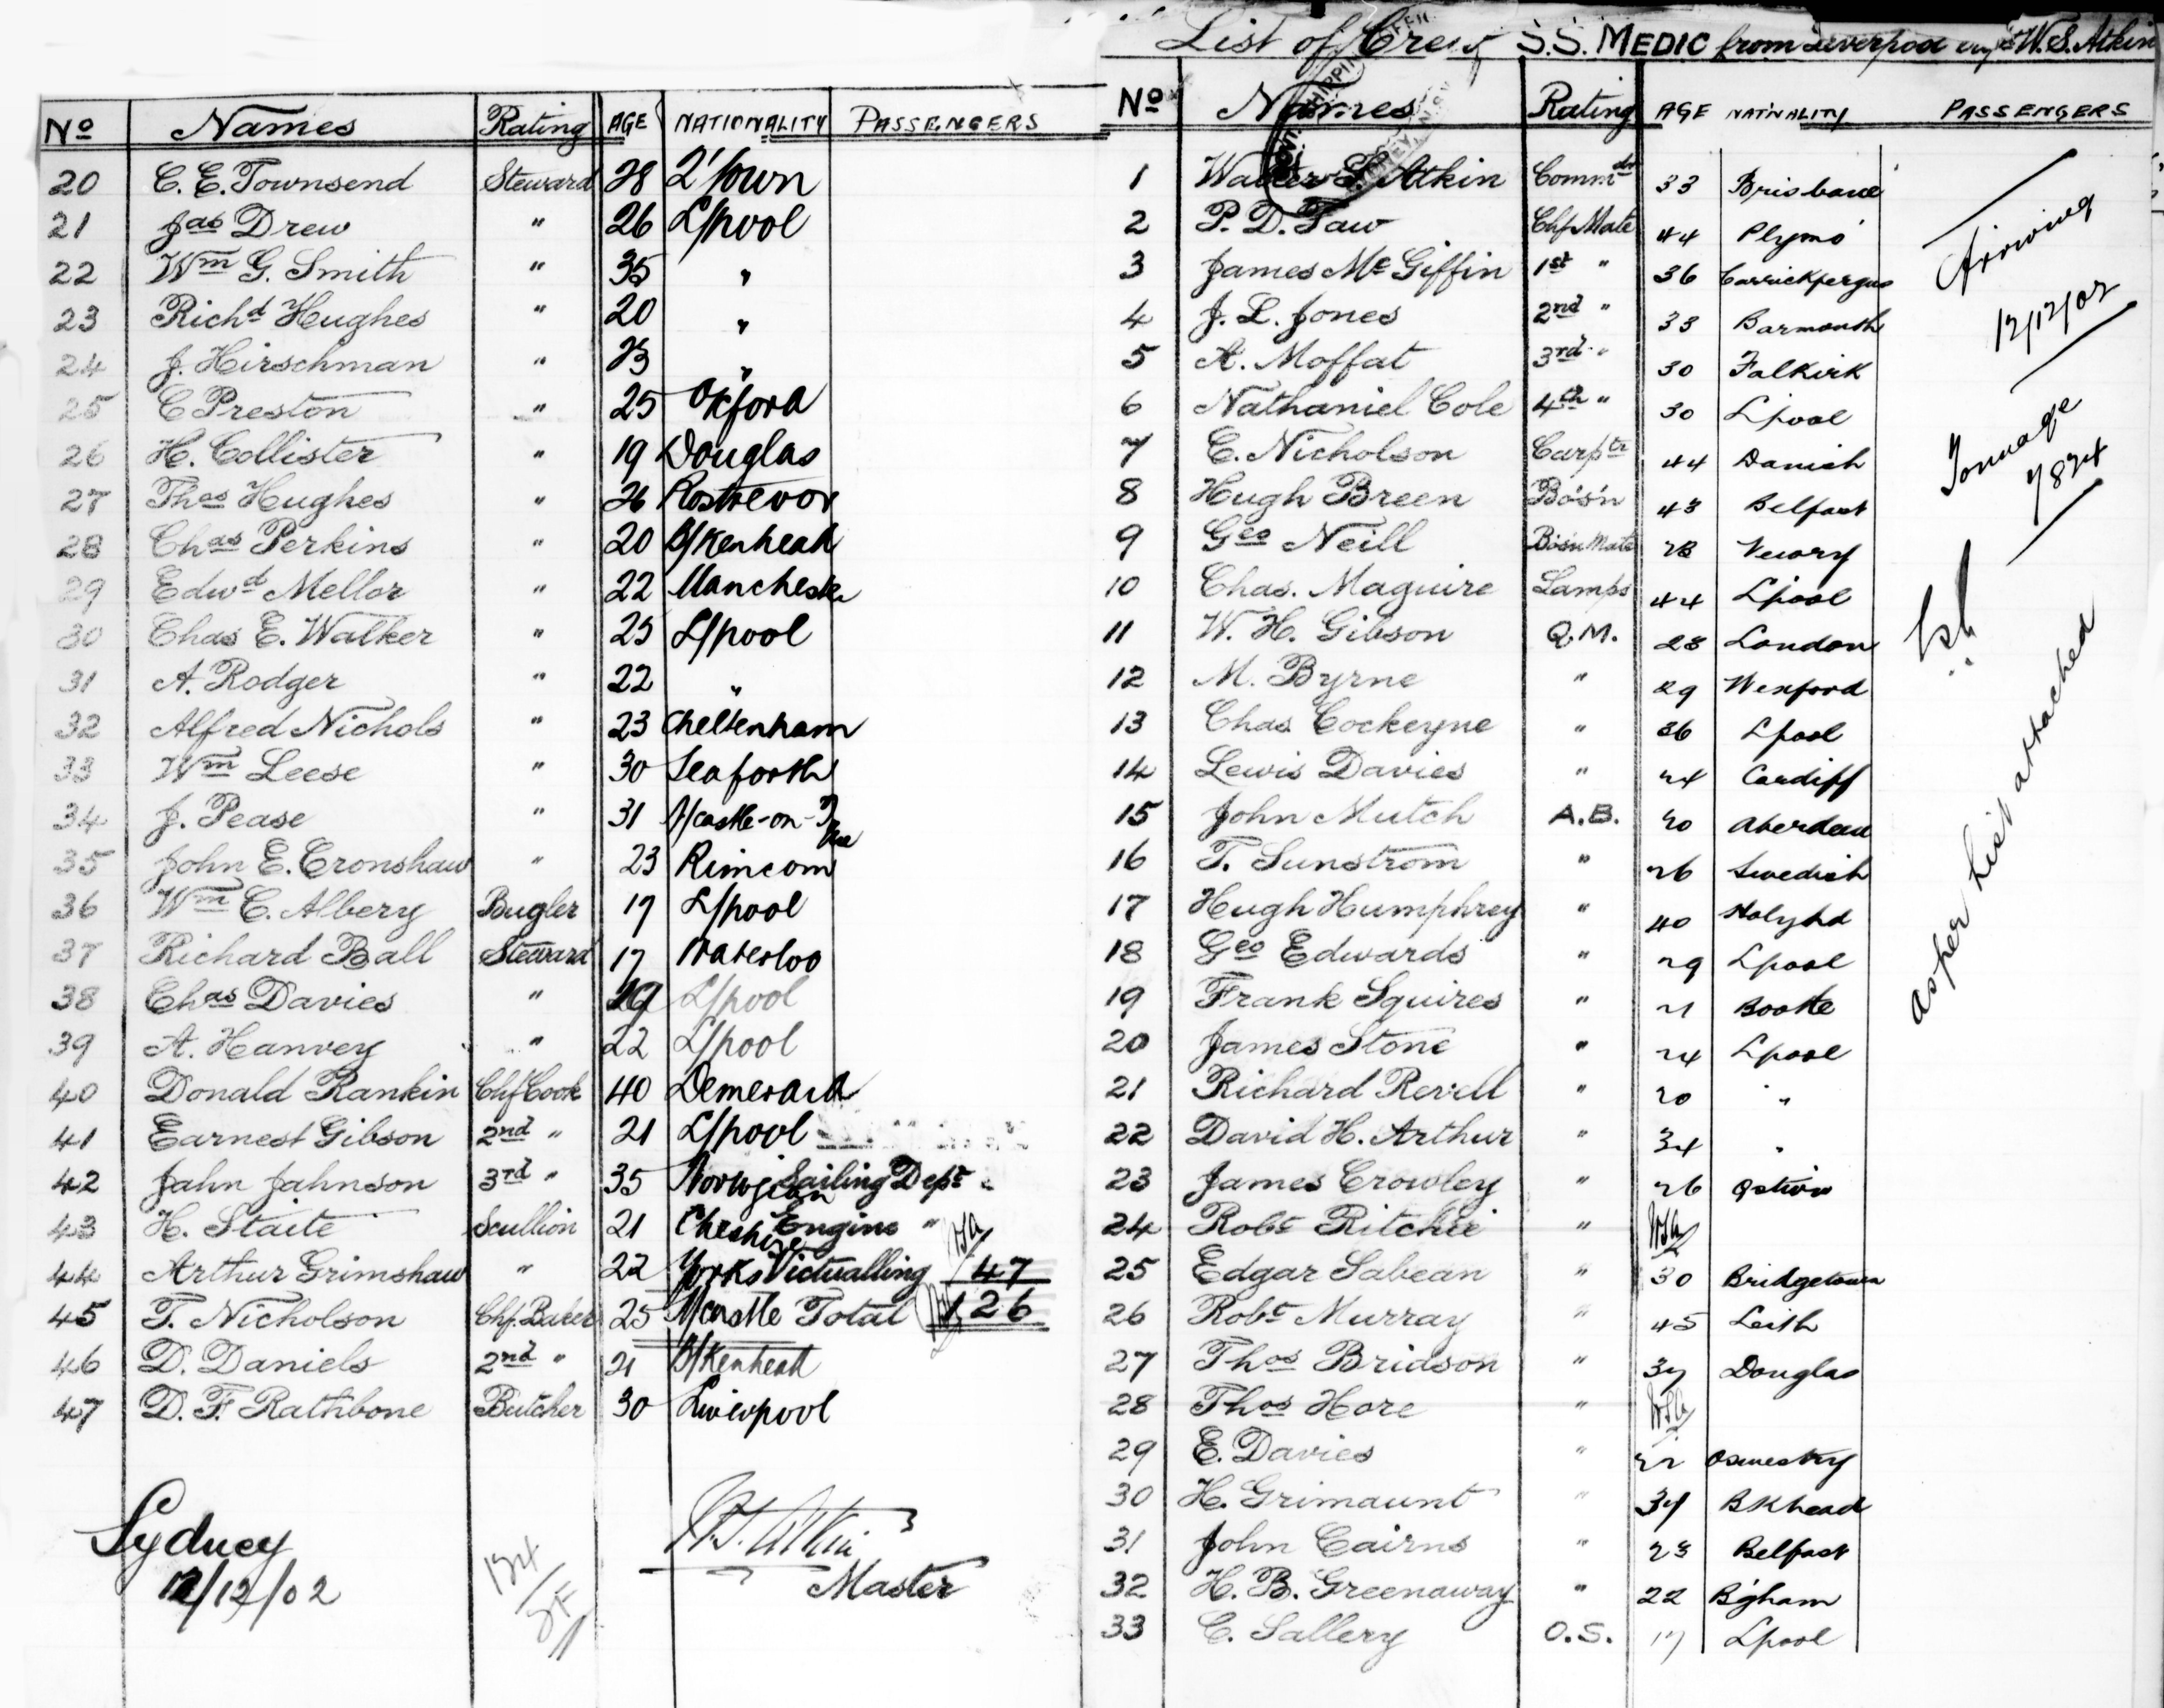 No Names Rating AGE NATIONALITY PASSENGERS
20 C. E. Townsend Steward 28 Q'Town
21 Jas Drew " 26 L/pool
22 Wm G. Smith " 35 "
23 Richd Hughes " 20 "
24 J. Hirschman " 23 "
25 C Preston " 25 Oxford
26 H. Collister " 19 Douglas
27 Thos Hughes " 26 Rostrevor
28 Chas Perkins " 20 B/Kenhead
29 Edwd Mellor " 22 Manchester
30 Chas E. Walker " 25 L/pool
31 A. Rodger " 22 "
32 Alfred Nichols " 23 Cheltenham
33 Wm Leese " 30 Seaforth
34 J. Pease " 31 N/castle-on-Tyne
35 John E. Cronshaw " 23 Rimcom
36 Wm C. Albery Bugler 17 L/pool
37 Richard Ball Steward 17 Waterloo
38 Chas Davies " L/pool
39 A. Hanvey " 22 L/pool
40 Donald Rankin Chf Cook 40 Demerara
41 Earnest Gibson 2nd " 21 L/pool
42 John Johnson 3rd " 35 Norwgian Sailing Dept
43 H. Staite Scullion 21 Cheshire Engine "
44 Arthur Grimshaw " 22 Yorks Victualling 47
45 T. Nicholson Chf. Baker 25 N/castle Total 126
46 D. Daniels 2nd " 21 B/Kenhead
47 D. F. Rathbone Butcher 30 Liverpool
Sydney
12/12/02
W. S. Atkin
Master
List of Crew S.S. MEDIC from Liverpool W. S. Atkin
No Names Rating AGE NAT'NALITY PASSENGERS
1 Walter S. Atkin Commdr 33 Brisbane
2 P. D. Faw Chf Mate 44 Plymo
3 James Mc Giffin 1st " 36 Carrickfergus
4 J. L. Jones 2nd " 33 Barmouth
5 A. Moffat 3rd " 30 Falkirk
6 Nathaniel Cole 4th " 30 L'pool
7 C. Nicholson Carptr 44 Danish
8 Hugh Breen Bos'n 43 Belfast
9 Geo Neill Bos'n Mate 28 Newry
10 Chas. Maguire Lamps 44 L'pool
11 W. H. Gibson Q.M. 28 London
12 M. Byrne " 29 Wexford
13 Chas Cockeyne " 36 Lpool
14 Lewis Davies " 24 Cardiff
15 John Mutch A.B. 20 Aberdeen
16 T. Sunstrom " 26 Swedish
17 Hugh Humphrey " 40 Holyhd
18 Geo Edwards " 29 Lpool
19 Frank Squires " 21 Bootle
20 James Stone " 24 Lpool
21 Richard Revell " 20 "
22 David H. Arthur " 34 "
23 James Crowley " 26
24 Robt Ritchie "
25 Edgar Sabean " 30 Bridgetown
26 Robt Murray " 45 Leith
27 Thos Bridson " 37 Douglas
28 Thos Hore "
29 E. Davies " 22 Oswestry
30 H. Grimaunt " 34 BKhead
31 John Cairns " 23 Belfast
32 H. B. Greenaway " 22 B'gham
33 C. Sallery O.S. 17 Lpool
Arriving
12/12/02
Tonnage
7824
as per list attached